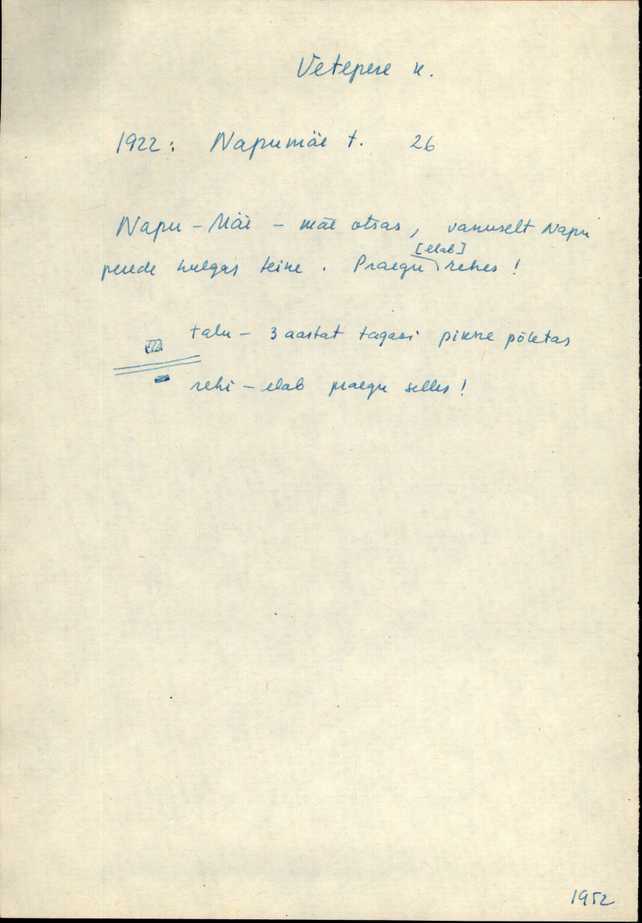 Vetepere k.
1922: Napumäe t. 26
Napu-Mäe - mäe otsas, vanuselt Napu
perede hulgas teine. Praegu [elab] rehes!
talu - 3 aastat tagasi pikne põletas
rehi - elab praegu selles!
1952